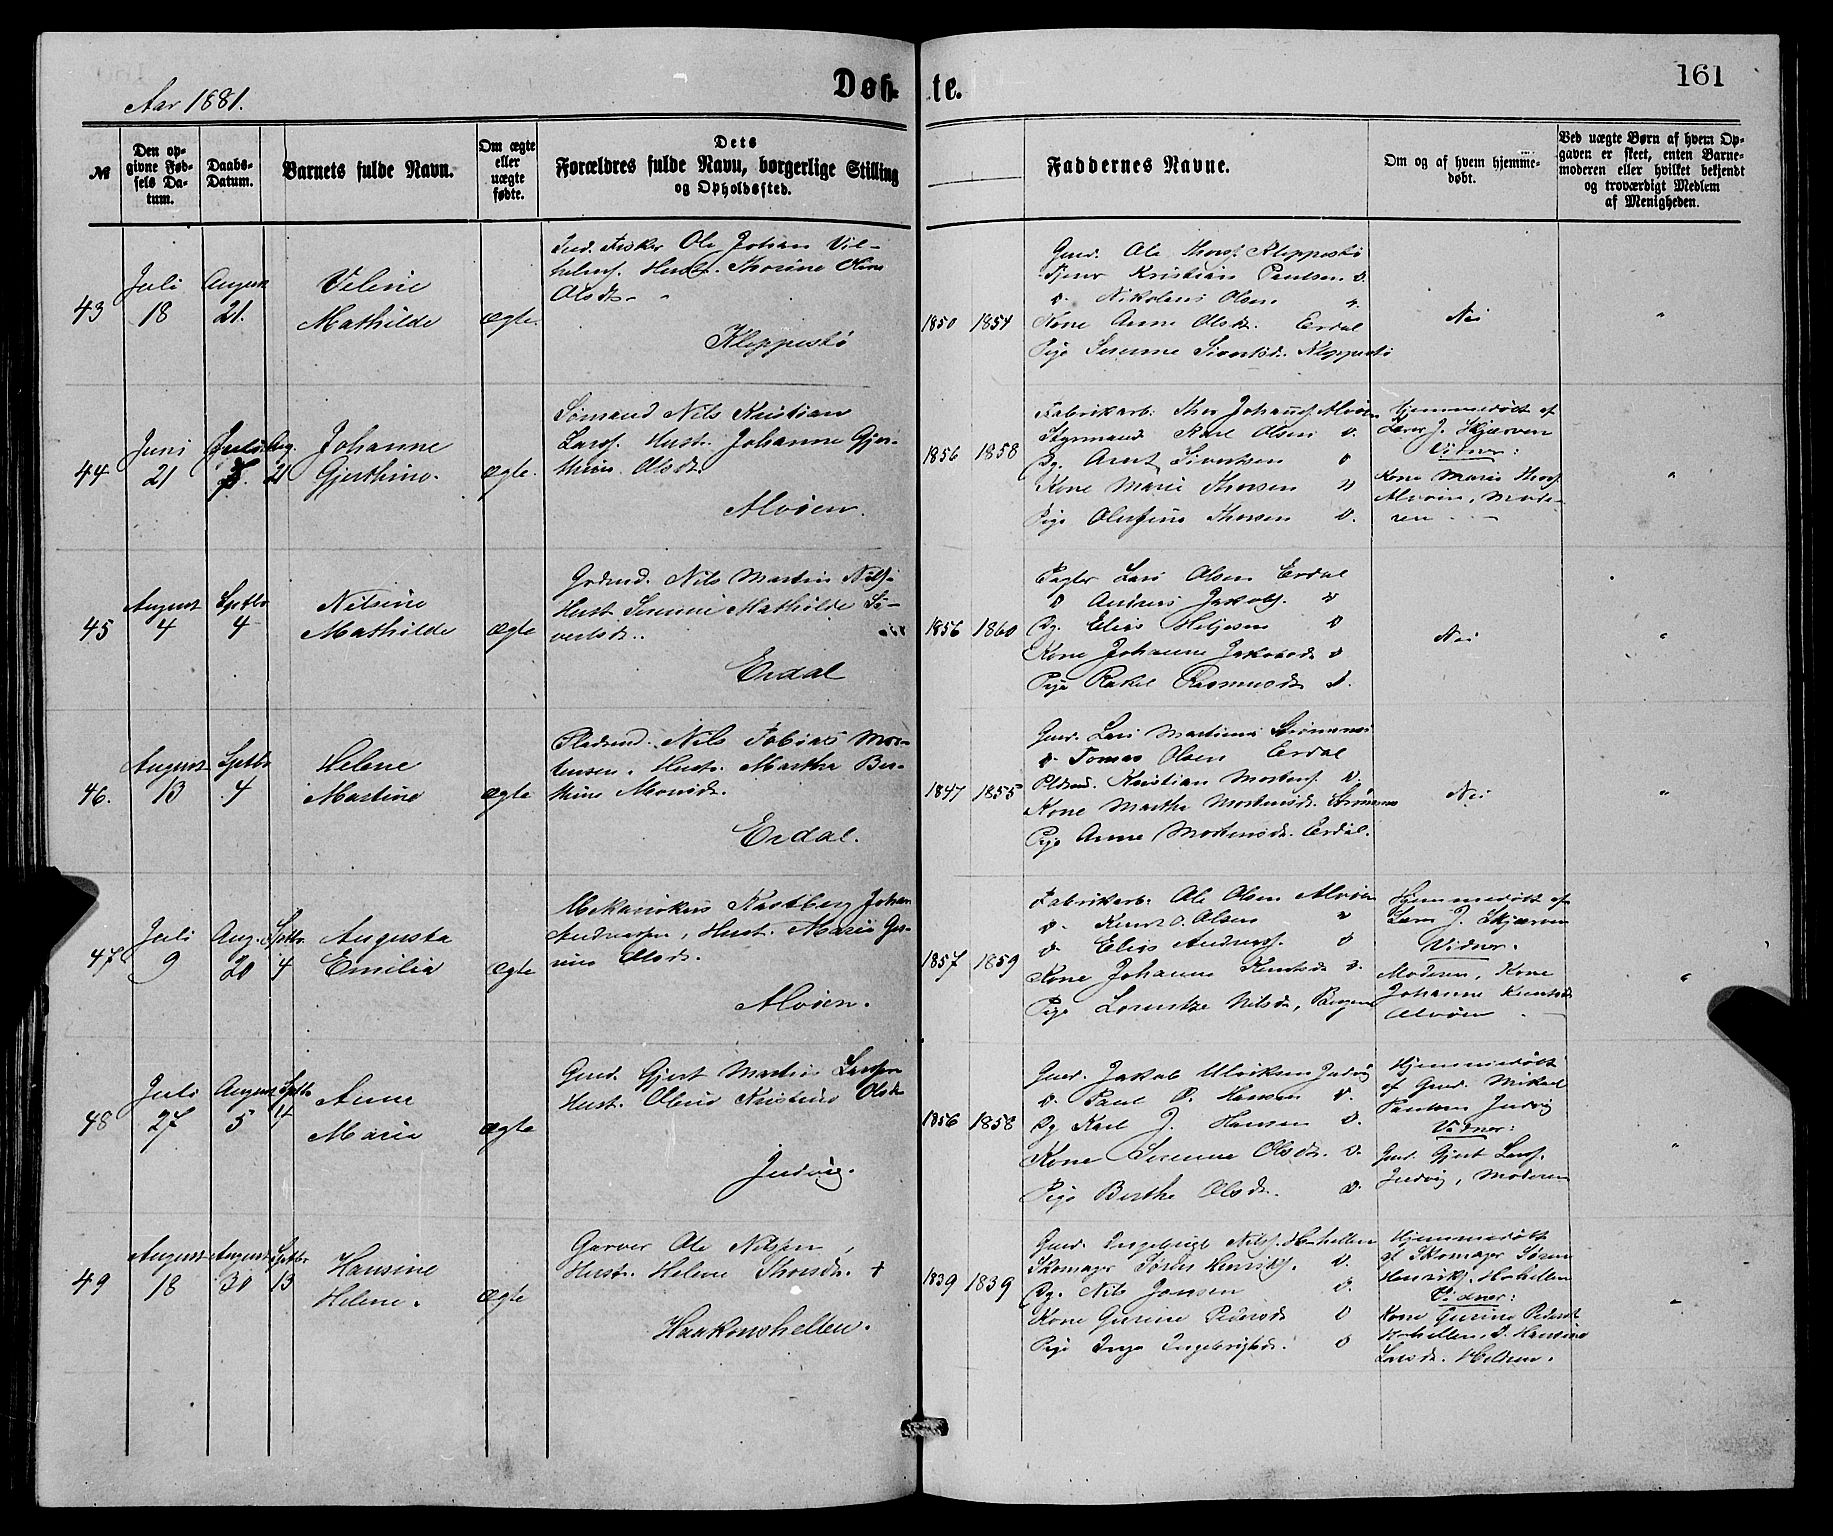 Aar 1881.
Døb- te.
161
№
Den op-
givne Fød-
sels Da-
tum.
Daabs-
Datum.
Barnets fulde Navn.
Om ægte
eller
uægte
fødte.
Dets
Forældres fulde Navn, borgerlige Stilling
og Opholdssted.
Faddernes Navne.
Om og af hvem hjemme-
døbt.
Ved uægte Børn af hvem Op-
gaven er skeet, enten Barne-
moderen eller hvilket bekjendt
og troværdigt Medlem
af Menigheden.
43
Juli
18
August
21.
Vilene
Mathilde
ægte.
Ind. Fisker Ole Johan Vil-
helms. Hustr. Thorine Oline
Olsdr.
Kleppestø
1850 1854
Gmd. Ole Thors. Kleppestø
Tjener Kristian Paulsen D.
D. Nikolaus Olsen
Kone Anne Olsdr. Erdal
Pige Serenne Sivertsdr. Kleppestø
Nei
"
44
Juni
21
Juli
Aug.
21
Johanne
Gjerthine.
ægte.
Sømand Nils Kristian
Larss. Hustr. Johanne Gjer-
thine Olsdr.
Alvøen.
1856 1858
Fabrikarb. Thor Johanns. Alvøen
Styrmand Karl Olsen D.
Yg. Arnt Sivertsen D
Kone Marie Thorsen D
Pige Olufine Thorsen D.
Hjemmedøbt af
Lærer J. Skjærven
Vidner:
Kone Marie Thors.
Alvøen, Mode-
ren
"
45
August
4
Septbr
4
Nilsine
Mathilde
ægte
Grdmd. Nils Martin Nils.
Hust. Serenne Mathilde Si-
vertsdr.
Erdal
1856 1860
Pagter Lars Olsen Erdal
D Andreas Jakobs. D
Yg. Elias Heljesen D
Kone Johanne Jakobsdr D
Pige Rakel Rasmusdr D.
Nei
"
46.
August
13
Septbr
4
Helene
Martine
ægte
Pladsmd. Nils Tobias Mor-
tensen, Hustr. Martha Ber-
thine Monsdr.
Erdal.
1847 1855
Gmd. Lars Martinus Strømsnes
D. Tomas Olsen Erdal
Pldsmd. Kristian Mortens. D.
Kone Marthe Mortensdr. Strømsnes
Pige Anne Mortensdr. Erdal.
Nei
"
47
Juli
9
Aug.
20
Septbr.
4
Augusta
Emilia
ægte
Mekanikus Kastberg Johan
Andreasen, Hust. Marie Gur-
ine Olsdr.
Alvøen.
1857 1859
Fabrikarb. Ole Olsen Alvøen
D. Knut O. Olsen D
D. Elias Andreas. D
Kone Johanne Knutsdr D.
Pige Lorentze Nilsdr, Bergen
Hjemmedøbt af
Lærer J. Skjærven
Vidner.
Moderen, Kone
Johanne Knutsdr
Alvøen
"
48
Juli
27
August
5
Septbr
4
Anne
Maria
ægte
Gmd. Gjert Martin Larsen
Hust. Oline Kristine Olsdr
Judvig.
1856 1858
Gmd. Jakob Ulriksen Judvig
D. Paul O. Hansen D.
Yg Karl J. Hansen D.
Kone Serenne Olsdr. D.
Pige Berthe Olsdr. D.
Hjemmedøbt
af Gmd. Mikael
Paulsen Judvig
Vidner:
Gmd. Gjert Lars.
Judvig, Moderen
"
49
August
18
August
30
Septbr
13
Hansine
Helene.
ægte
Garver Ole Nilsen,
Hustr. Helene Thorsdr. +
Haakonshellen.
1839 1839
Gmd. Engebrigt Nils. H-hellen
Skomager Søren Henriks. D.
Yg. Nils Jansen D.
Kone Gurine Pedersdr D
Pige Inga Engebrigtsdr. D
Hjemmedøbt
af Skomager Søren
Henriks. H-hellen
Vidner:
Kone Gurine Pedersdr
H-hellen, P. Hansine
Larsdr. Hellen.
"